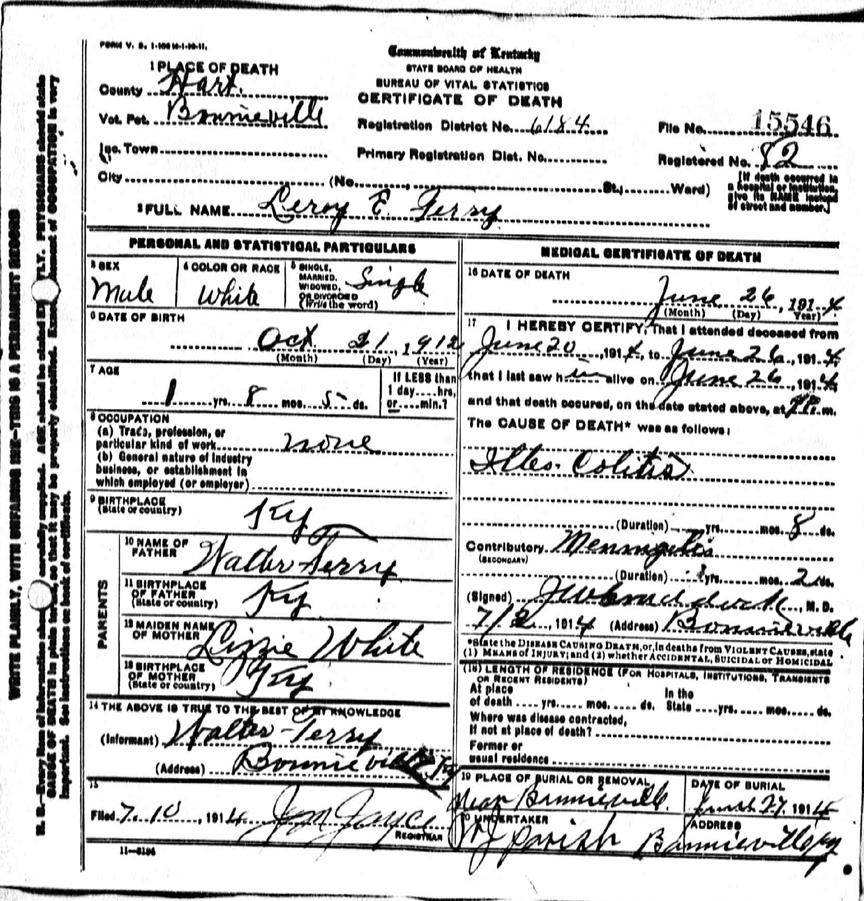 FORM V. S. 1-100M-1-10-11.
Commonwealth of Kentucky
STATE BOARD OF HEALTH
BUREAU OF VITAL STATISTICS
CERTIFICATE OF DEATH
1 PLACE OF DEATH
County Hart.
Vot. Pct. Bonnieville
Inc. Town
City (No. St.; Ward)
Registration District No. 6184
Primary Registration Dist. No.
File No. 15546
Registered No. 82
[If death occurred in
a hospital or institution,
give its NAME instead
of street and number.]
2 FULL NAME Leroy E. Terry
PERSONAL AND STATISTICAL PARTICULARS
3 SEX
Male
4 COLOR OR RACE
White
5 SINGLE,
MARRIED,
WIDOWED,
OR DIVORCED
(Write the word)
Single
6 DATE OF BIRTH
Oct 21, 1912
(Month) (Day) (Year)
7 AGE
1 yrs. 8 mos. 5 ds.
If LESS than
1 day....hrs,
or....min.?
8 OCCUPATION
(a) Trade, profession, or
particular kind of work none
(b) General nature of industry
business, or establishment in
which employed (or employer)
9 BIRTHPLACE
(State or country)
Ky
PARENTS
10 NAME OF
FATHER
Walter Terry
11 BIRTHPLACE
OF FATHER
(State or country)
Ky
12 MAIDEN NAME
OF MOTHER
Lizzie White
13 BIRTHPLACE
OF MOTHER
(State or country)
Ky
14 THE ABOVE IS TRUE TO THE BEST OF MY KNOWLEDGE
(Informant) Walter Terry
(Address) Bonnieville Ky
15
Filed 7-10, 1914
REGISTRAR
11-3184
MEDICAL CERTIFICATE OF DEATH
16 DATE OF DEATH
June 26, 1914
(Month) (Day) (Year)
17 I HEREBY CERTIFY, That I attended deceased from
June 20, 1914, to June 26, 1914,
that I last saw him alive on June 26, 1914,
and that death occured, on the date stated above, at m.
The CAUSE OF DEATH* was as follows:
Illeo-Colitis
(Duration) yrs. mos. 8 ds.
Contributory Meningitis
(SECONDARY)
(Duration) yrs. mos. 2 ds.
(Signed) M. D.
1914 (Address) Bonnieville
*State the DISEASE CAUSING DEATH, or, in deaths from VIOLENT CAUSES, state
(1) MEANS OF INJURY; and (2) whether ACCIDENTAL, SUICIDAL or HOMICIDAL
(18) LENGTH OF RESIDENCE (FOR HOSPITALS, INSTITUTIONS, TRANSIENTS
OR RECENT RESIDENTS)
At place
of death yrs. mos. ds.
In the
State yrs. mos. ds.
Where was disease contracted,
If not at place of death?
Former or
usual residence
19 PLACE OF BURIAL OR REMOVAL
Near Bonnieville
DATE OF BURIAL
27, 1914
20 UNDERTAKER
Parish
ADDRESS
Bonnieville Ky
WRITE PLAINLY, WITH UNFADING INK—THIS IS A PERMANENT RECORD
N. B.—Every item of information should be carefully supplied. AGE should be stated EXACTLY. PHYSICIANS should state
CAUSE OF DEATH in plain terms, so that it may be properly classified. Exact statement of OCCUPATION is very
important. See instructions on back of certificate.